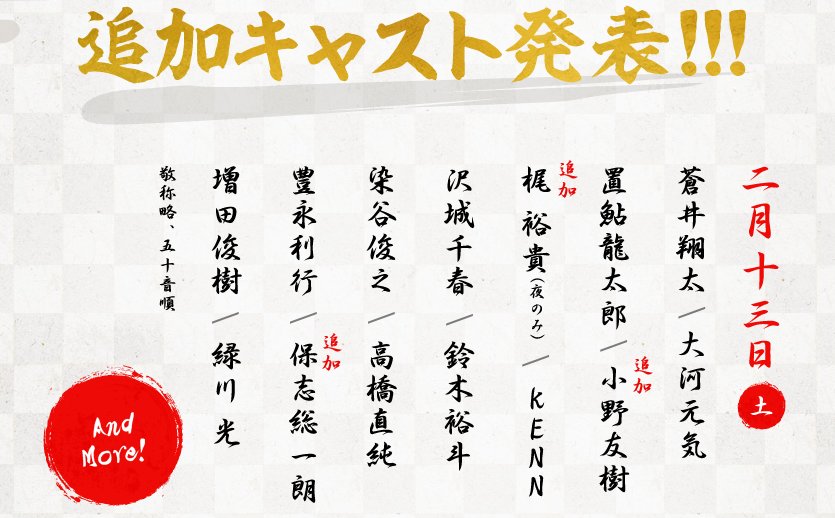 追加キャスト発表!!!
二月十三日
土
蒼井翔太/大河元気
置鮎龍太郎/小野友樹
追加
梶裕貴(夜のみ)/KENN
追加
沢城千春/鈴木裕斗
染谷俊之/高橋直純
豊永利行/保志総一朗
追加
増田俊樹/緑川光
敬称略、五十音順
And
More!